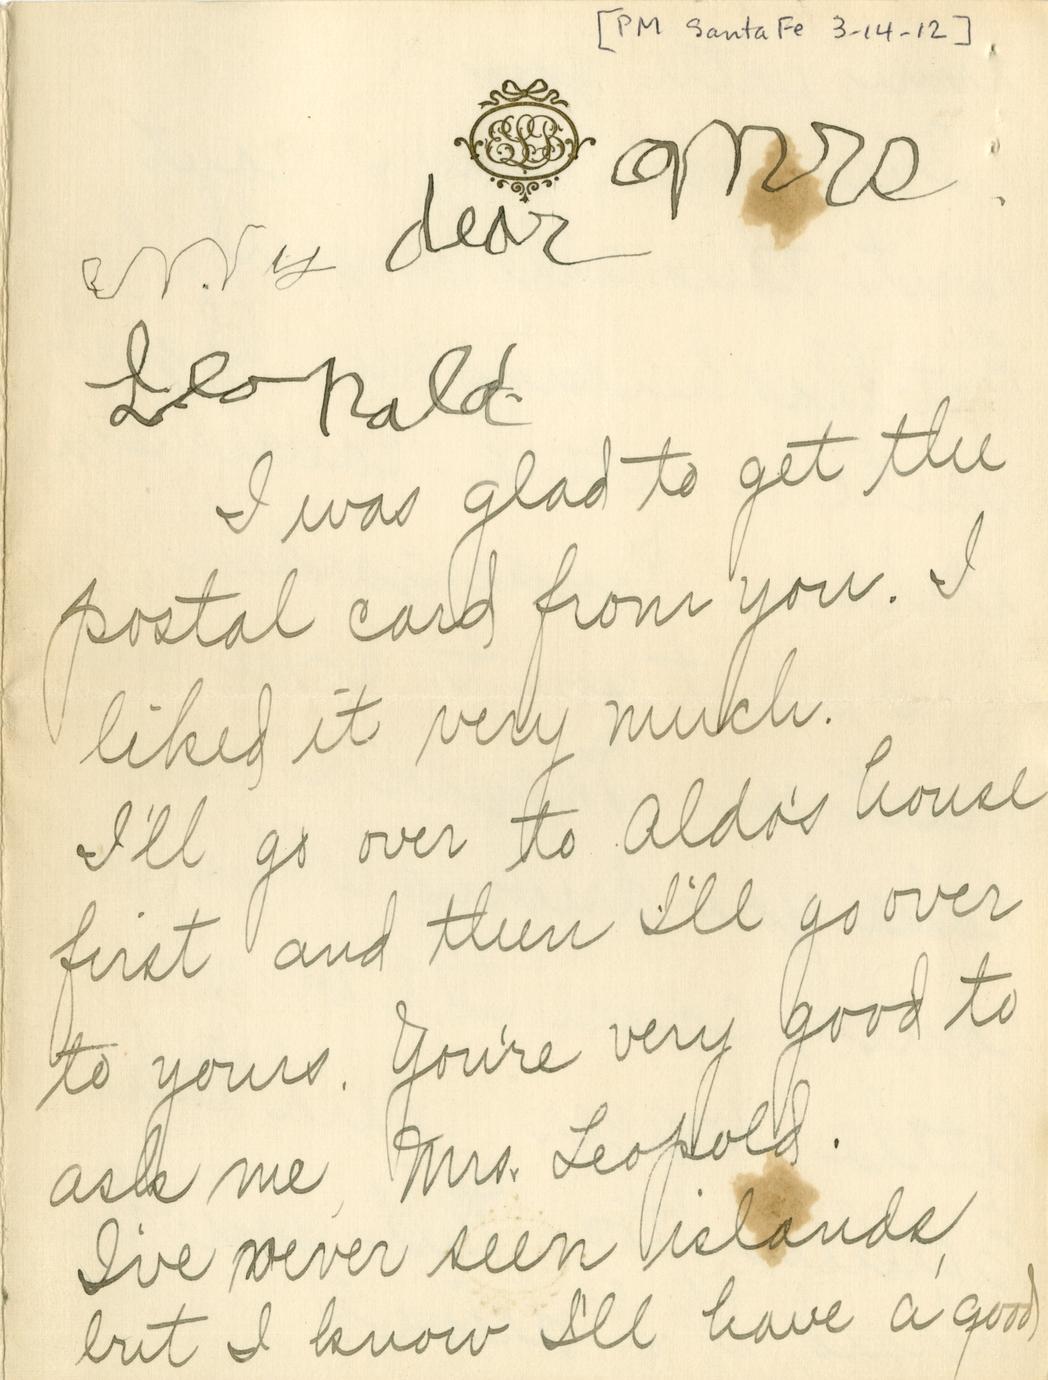 [PM Santa Fe 3-14-12]
ELB
My dear Mrs
Leopald
I was glad to get the
postal card from you. I
liked it very much.
I'll go over to Aldo's house
first and then I'll go over
to yours. You're very good to
ask me, Mrs. Leopold.
I've never seen islands,
but I know I'll have a good